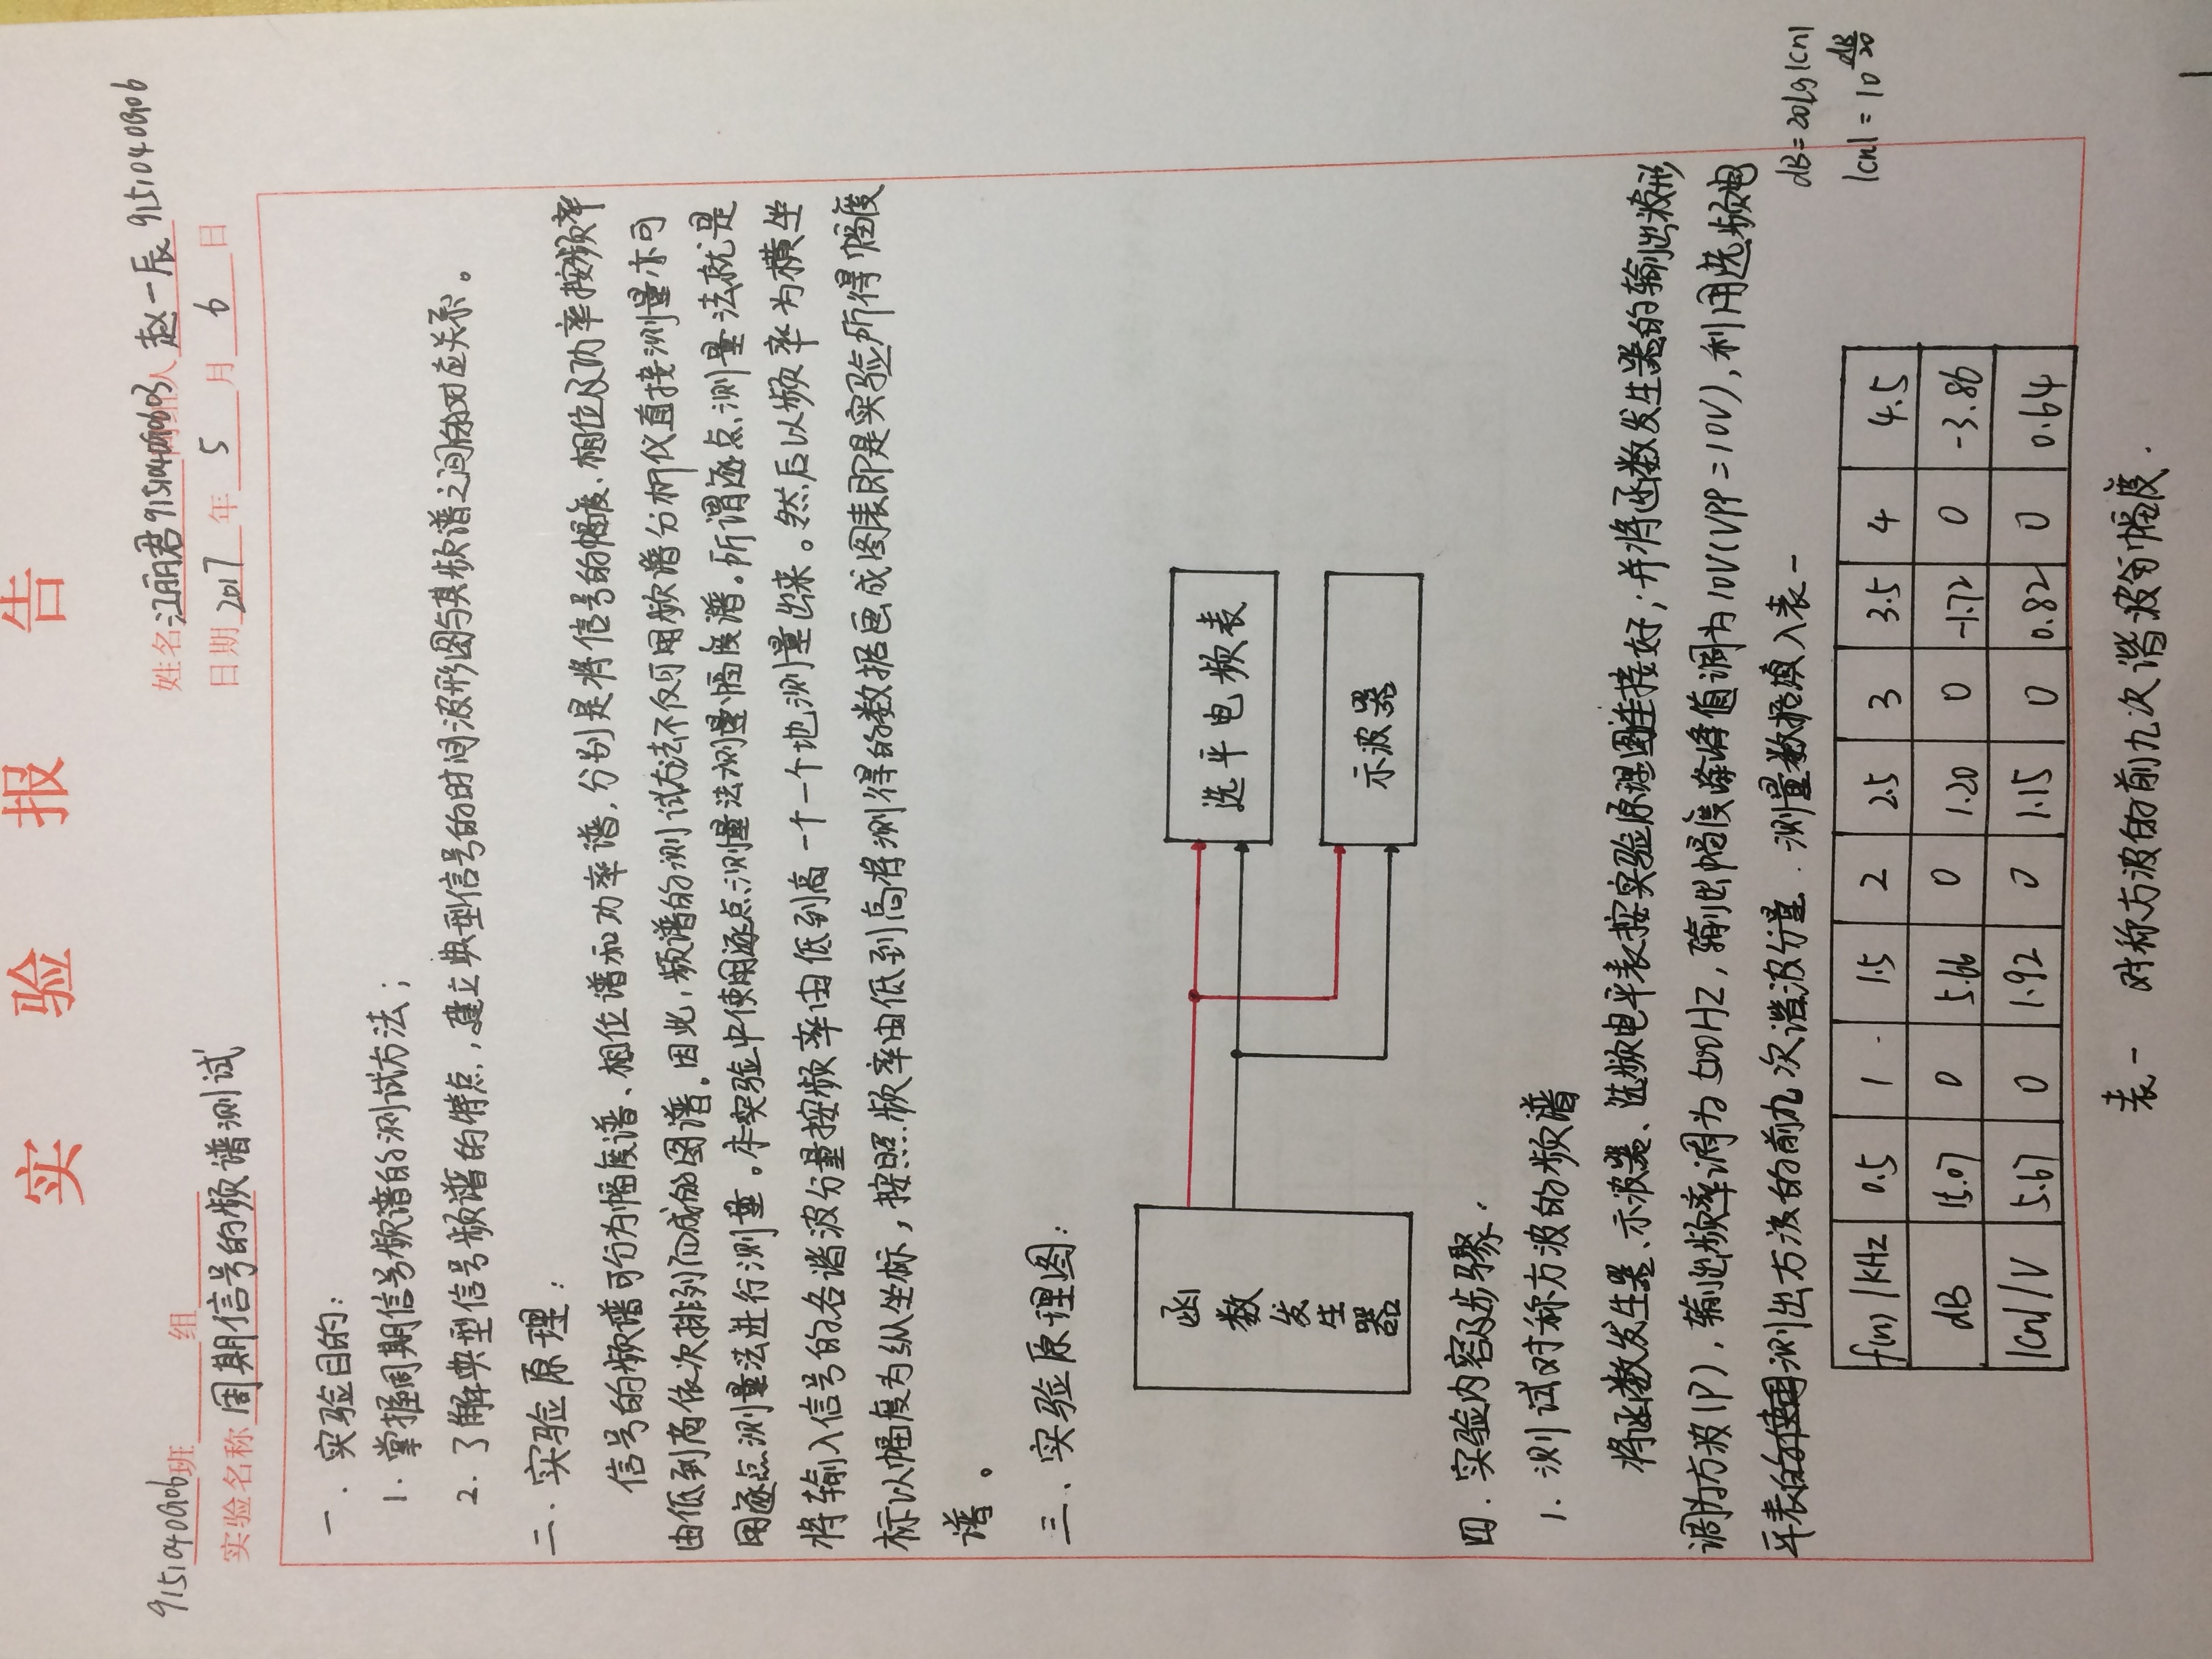 实 验 报 告
9151040G06班 组 姓名江丽君9151040G0603同组人 赵一辰 9151040G06
实验名称 周期信号的频谱测试 日期 2017 年 5 月 6 日
一. 实验目的:
1. 掌握周期信号频谱的测试方法;
2. 了解典型信号频谱的特点,建立典型信号的时间波形图与其频谱之间的对应关系。
二. 实验原理:
信号的频谱可分为幅度谱、相位谱和功率谱,分别是将信号的幅度、相位及功率按频率
由低到高依次排列而成的图谱。因此,频谱的测试方法不仅可用频谱分析仪直接测量亦可
用逐点测量法进行测量。本实验中使用逐点测量法测量幅度谱。所谓逐点测量法就是
将输入信号的各谐波分量按频率由低到高一个一个地测量出来。然后以频率为横坐
标以幅度为纵坐标,按照频率由低到高将测得的数据画成图表即是实验所得幅度
谱。
三、实验原理图:
函数发生器
选平电频表
示波器
四. 实验内容及步骤.
1. 测试对称方波的频谱
将函数发生器、示波器、选频电平表按实验原理图连接好;并将函数发生器的输出波形
调为方波(P),输出频率调为500HZ,输出幅度峰峰值调为10V(VPP=10V),利用选频电
平表的使用测出方波的前九次谐波分量.测量数据填入表一
dB=20lg|cn|
|cn|=10^(dB/20)
f(n)/KHZ 0.5 1 1.5 2 2.5 3 3.5 4 4.5
dB 15.07 0 5.66 0 1.20 0 -1.72 0 -3.86
|cn|/V 5.67 0 1.92 0 1.15 0 0.82 0 0.64
表一 对称方波的前九次谐波分幅度.